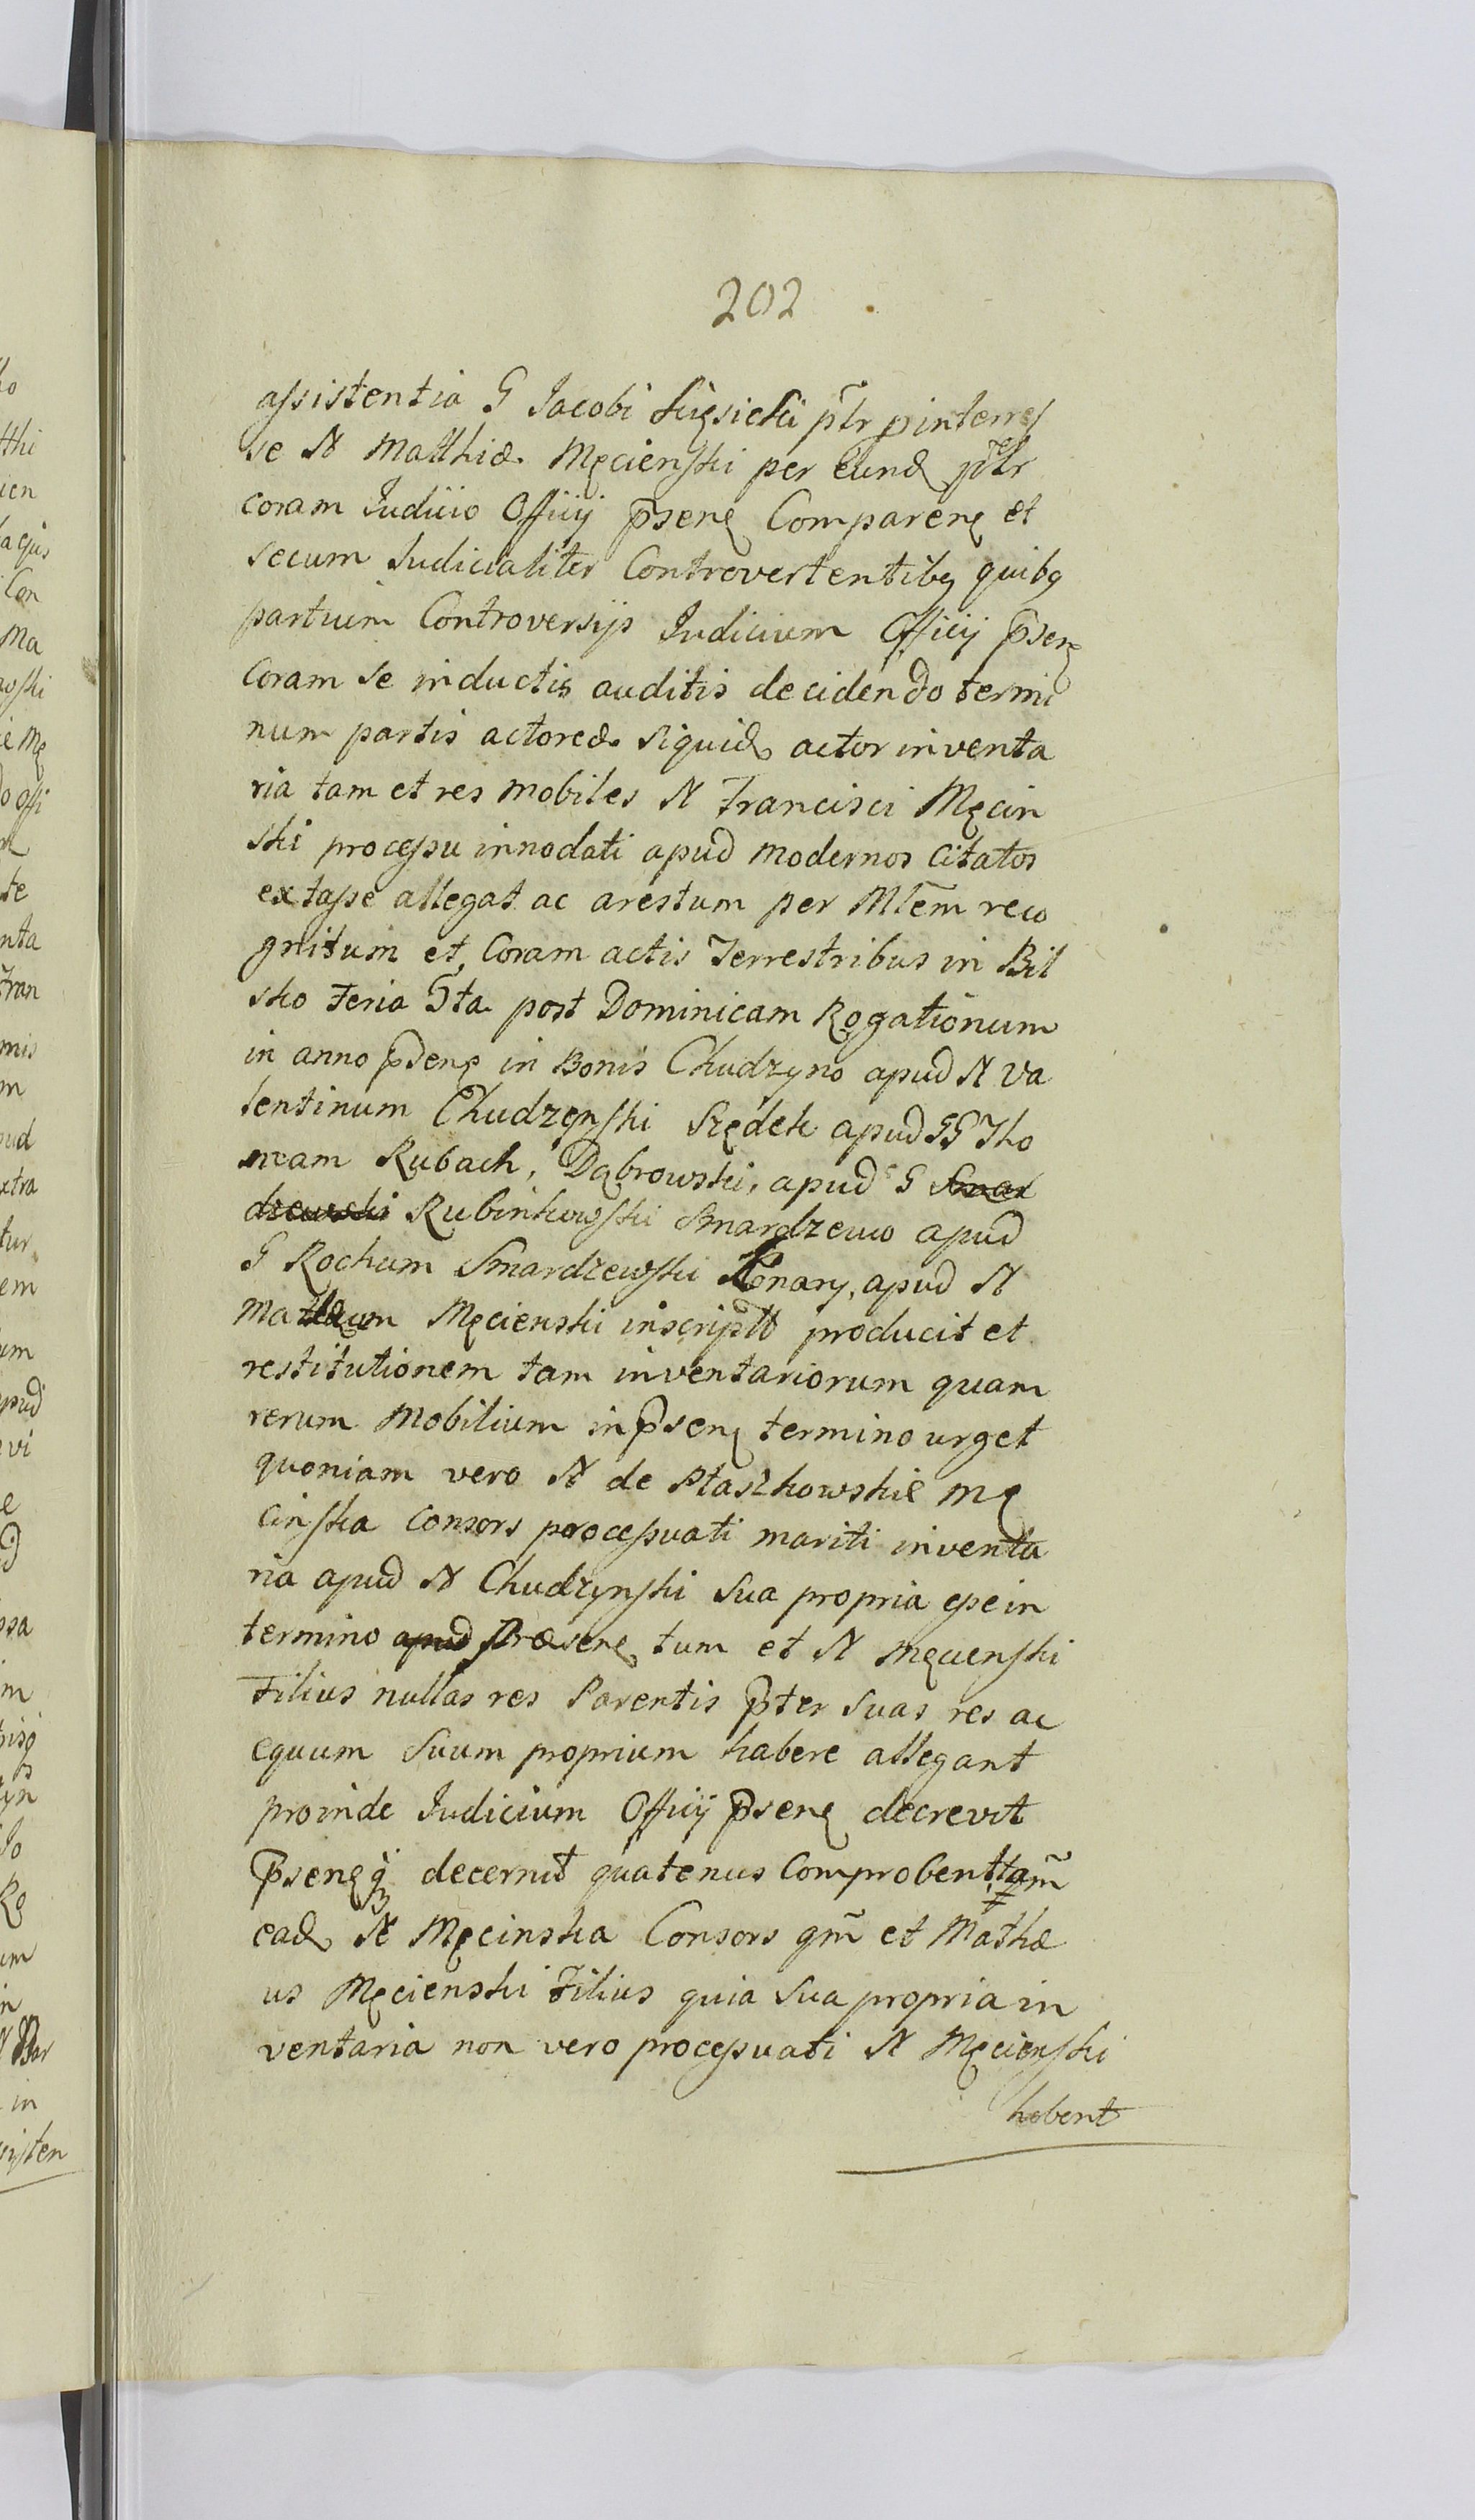 202
assistentia G Jacobi ptr
se N Matthiæ Męcienski per eund ptr
coram Judicio Officij psenę Comparenę et
secum Judicialiter Controvertentibq quibq
partium Controversijs Judicium Officij psenę
Coram se inductis auditis decidendo termi
num partis actoreæ siquid actor inventa
ria tam et res mobiles N Francisci Męcin
ski processu innodati apud modernos Citatos
extasse allegat ac arestum per Mtem reco
gnitum et Coram actis Terrestribus in Biel
sko Feria 5ta post Dominicam Rogationum
in anno psenę in Bonis Chudzyno apud N Va
lentinum Chudzynski Szędek apud GG Tho
mam Rubach, Dąbrowski, apud G Smar
dzewski Rubinkowski Smardzewo apud
G Rochum Smardzewski Konary, apud N
Mathæum Męcienski producit et
restitutionem tam inventariorum quam
rerum Mobilium in psenę termino urget
quoniam vero N de Ptaszkowskie Mę
cinska Consors processuati mariti inventa
ria apud N Chudzynski sua propria esse in
termino apud Præsenę tum et N Męcienski
Filius nullas res Parentis pter suas res ac
equum suum proprium habere allegant
proinde Judicium Officij psenę decrevit
psenęq decernit quatenus Comprobent tam
ead N Męcinska Consors qm et Mathæ
us Męcienski Filius quia sua propria in
ventaria non vero processuati N Męcienski
habent